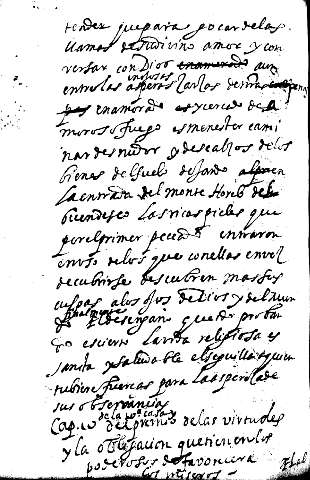 tender que para gocar de las
llamas de su divino amor y con
versar con Dios enamorado aun
entre las asperas çarças de
enamorado y cercado de a
moroso fuego es menester cami
nar desnudos y descalços de los
bienes del suelo dejando
la entrada del monte Horeb de
buen deseo las ricas pieles que
por el primer pecado entraron
en uso de los que con ellas en vez
de cubrirse descubren mas sus
culpas a los ojos de Dios y del mun
do finalmente el desengaño que da probar
es cierto la vida religiosa es
santa y saludable el seguilla quien
tubiere fuerças para la aspereza de
sus observancias
Cap. 10 del premio de las virtudes
y la obligacion que tienen los
poderosos de favorecer a
los